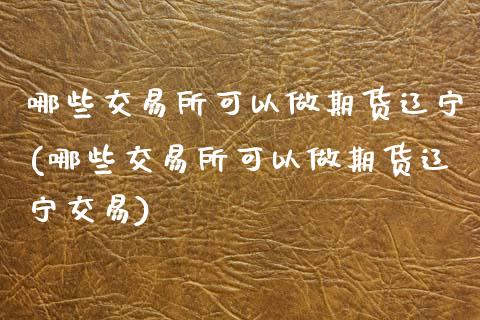 哪些交易所可以做期货辽宁
(哪些交易所可以做期货辽
宁交易)